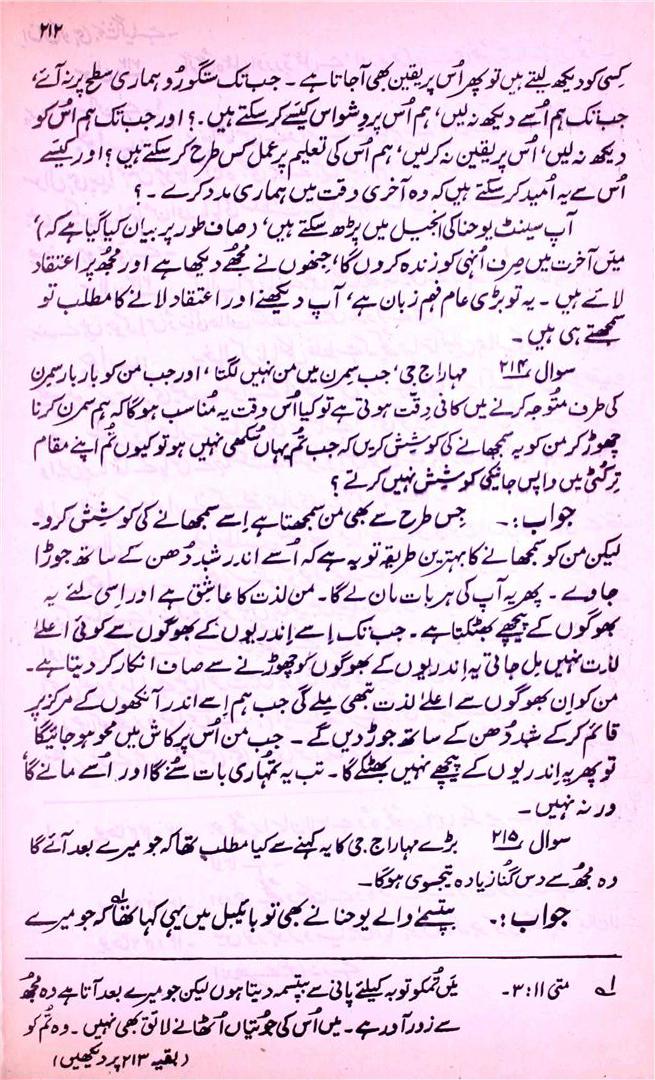 ۲۱۲
کسی کو دیکھ لیتے ہیں تو پھر اُس پر یقین بھی آجاتا ہے ۔ جب تک ستگورو ہماری سطح پر نہ آئے،
جب تک ہم اُسے دیکھ نہ لیں، ہم اُس پر وشواس کیسے کر سکتے ہیں ۔؟ اور جب تک ہم اُس کو
دیکھ نہ لیں، اُس پر یقین نہ کرلیں، ہم اُس کی تعلیم پر عمل کس طرح کر سکتے ہیں؟ اور کیسے
اُس سے یہ اُمید کر سکتے ہیں کہ وہ آخری وقت میں ہماری مدد کرے ۔ ؟
آپ سینٹ یوحنا کی انجیل میں پڑھ سکتے ہیں، (صاف طور پر بیان کیا گیا ہے کہ)،
میں آخرت میں صِرف اُنہی کو زندہ کروں گا، جِنھوں نے مجھے دیکھا ہے اور مجھ پر اعتقاد
لائے ہیں ۔ یہ تو بڑی عام فہم زبان ہے، آپ دیکھنے اور اعتقاد لانے کا مطلب تو
سمجھتے ہی ہیں ۔
سوال ۲۱۴ مہاراج جی، جب سِمرن میں من نہیں لگتا، اور جب من کو بار بار سمرن
کی طرف متوجہ کرنے میں کافی دِقّت ہوتی ہے تو کیا اُس وقت یہ مُناسب ہوگا کہ ہم سمرن کرنا
چھوڑ کر من کو یہ سمجھانے کی کوشش کریں کہ جب تُم یہاں سُکھی نہیں ہو تو کیوں تُم اپنے مقام
تِرکُٹی میں واپس جانیکی کوشش نہیں کرتے ؟
جواب :۔ جِس طرح سے بھی من سمجھتا ہے اِسے سمجھانے کی کوشش کرو۔
لیکن من کو سمجھانے کا بہترین طریقہ تو یہ ہے کہ اُسے اندر شبد دُھن کے ساتھ جوڑا
جاوے ۔ پھر یہ آپ کی ہر بات مان لے گا۔ من لذت کا عاشق ہے اور اِسی لئے یہ
بھوگوں کے پیچھے بھٹکتا ہے۔ جب تک اِسے اِندریوں کے بھوگوں سے کوئی اعلےٰ
لذت نہیں مِل جاتی یہ اِندریوں کے بھوگوں کو چھوڑنے سے صاف اِنکار کر دیتا ہے۔
من کو اِن بھوگوں سے اعلےٰ لذت تبھی ملے گی جب ہم اِسے اندر آنکھوں کے مرکز پر
قائم کرکے شبد دُھن کے ساتھ جوڑ دیں گے ۔ جب من اُس پرکاش میں محو ہو جائیگا
تو پھر یہ اِندریوں کے پیچھے نہیں بھٹکے گا۔ تب یہ تمہاری بات سُنے گا اور اُسے مانے گا،
ورنہ نہیں ۔
سوال ۲۱۵ بڑے مہاراج جی کا یہ کہنے سے کیا مطلب تھا کہ جو میرے بعد آئے گا
وہ مجھ سے دس گُنا زیادہ تیجسوی ہوگا۔
جواب :۔ بپتسمے والے یوحنا نے بھی تو بائیبل میں یہی کہا تھا کہ جو میرے
۱؎ متی ۱۱:۳۔ میں تُمکو توبہ کیلئے پانی سے بپتسمہ دیتا ہوں لیکن جو میرے بعد آتا ہے وہ مجھ
سے زور آور ہے ۔ میں اُس کی جُوتیاں اُٹھانے لائق بھی نہیں ۔ وہ تُم کو
(بقیہ ۲۱۳ پر دیکھیں)